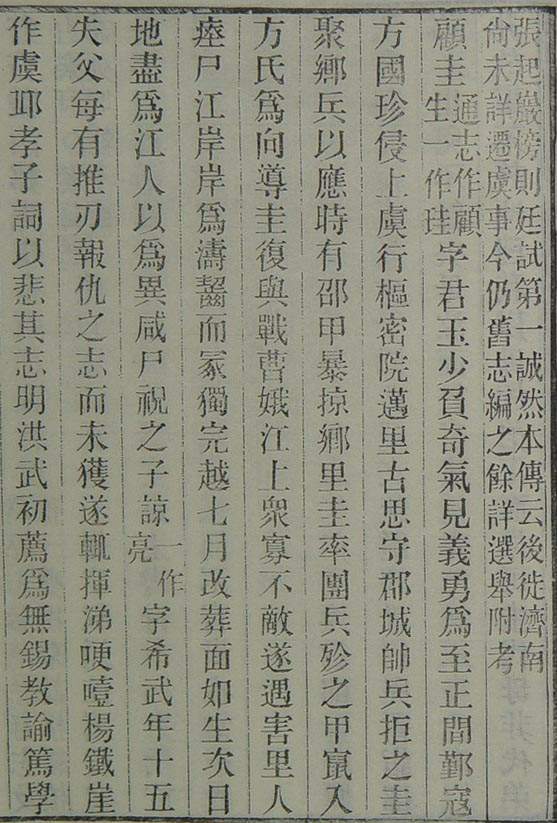 張起巖榜則廷試第一誠然本傳云後徙濟南
尙未詳遷虞事今仍舊志編之餘詳選舉附考
顧圭通志作顧生一作珪字君玉少負奇氣見義勇爲至正間鄞寇
方國珍侵上虞行樞密院邁里古思守郡城帥兵拒之圭
聚鄉兵以應時有邵甲暴掠鄉里圭率團兵殄之甲竄入
方氏爲向導圭復與戰曹娥江上衆寡不敵遂遇害里人
瘞尸江岸岸爲濤齧而冢獨完越七月改葬面如生次日
地盡爲江人以爲異咸尸祝之子諒一作亮字希武年十五
失父每有推刃報仇之志而未獲遂輒揮涕哽噎楊鐵崖
作虞邱孝子詞以悲其志明洪武初薦爲無錫教諭篤學